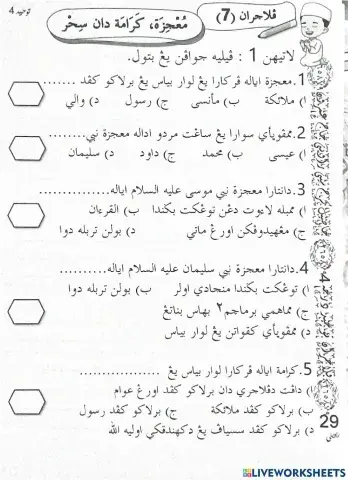 توحيد 4
ڤلاجرن (7)
معجزة، كرامة دان سحر
لاتيهن 1 : ڤيليه جواڤن يڠ بتول.
1. معجزة اياله ڤركارا يڠ لوار بياس يڠ برلاكو كڤد ........
ا) ملائكة ب) مأنسي ج) رسول د) والي
2. ممڤوڽاٴي سوارا يڠ ساڠت مردو اداله معجزة نبي......
ا) عيسى ب) محمد ج) داود د) سليمان
3. دانتارا معجزة نبي موسى عليه السلام اياله..............
ا) ممبله لاءوت دڠن توڠكت بݢيندا ب) القرءان
ج) مڠهيدوڤكن اورڠ ماتي د) بولن تربله دوا
4. دانتارا معجزة نبي سليمان عليه السلام اياله..........
ا) توڠكت بݢيندا منجادي اولر ب) بولن تربله دوا
ج) مماهمي برماچم٢ بهاس بناتڠ
د) ممڤوڽاٴي ككواتن يڠ لوار بياس
5. كرامة اياله ڤركارا لوار بياس يڠ ..................
ا) داڤت دڤلاجري دان برلاكو كڤد اورڠ عوام
ب) برلاكو كڤد ملائكة ج) برلاكو كڤد رسول
د) برلاكو كڤد سسياڤ يڠ دكهندقكي اوليه الله
29
LIVEWORKSHEETS